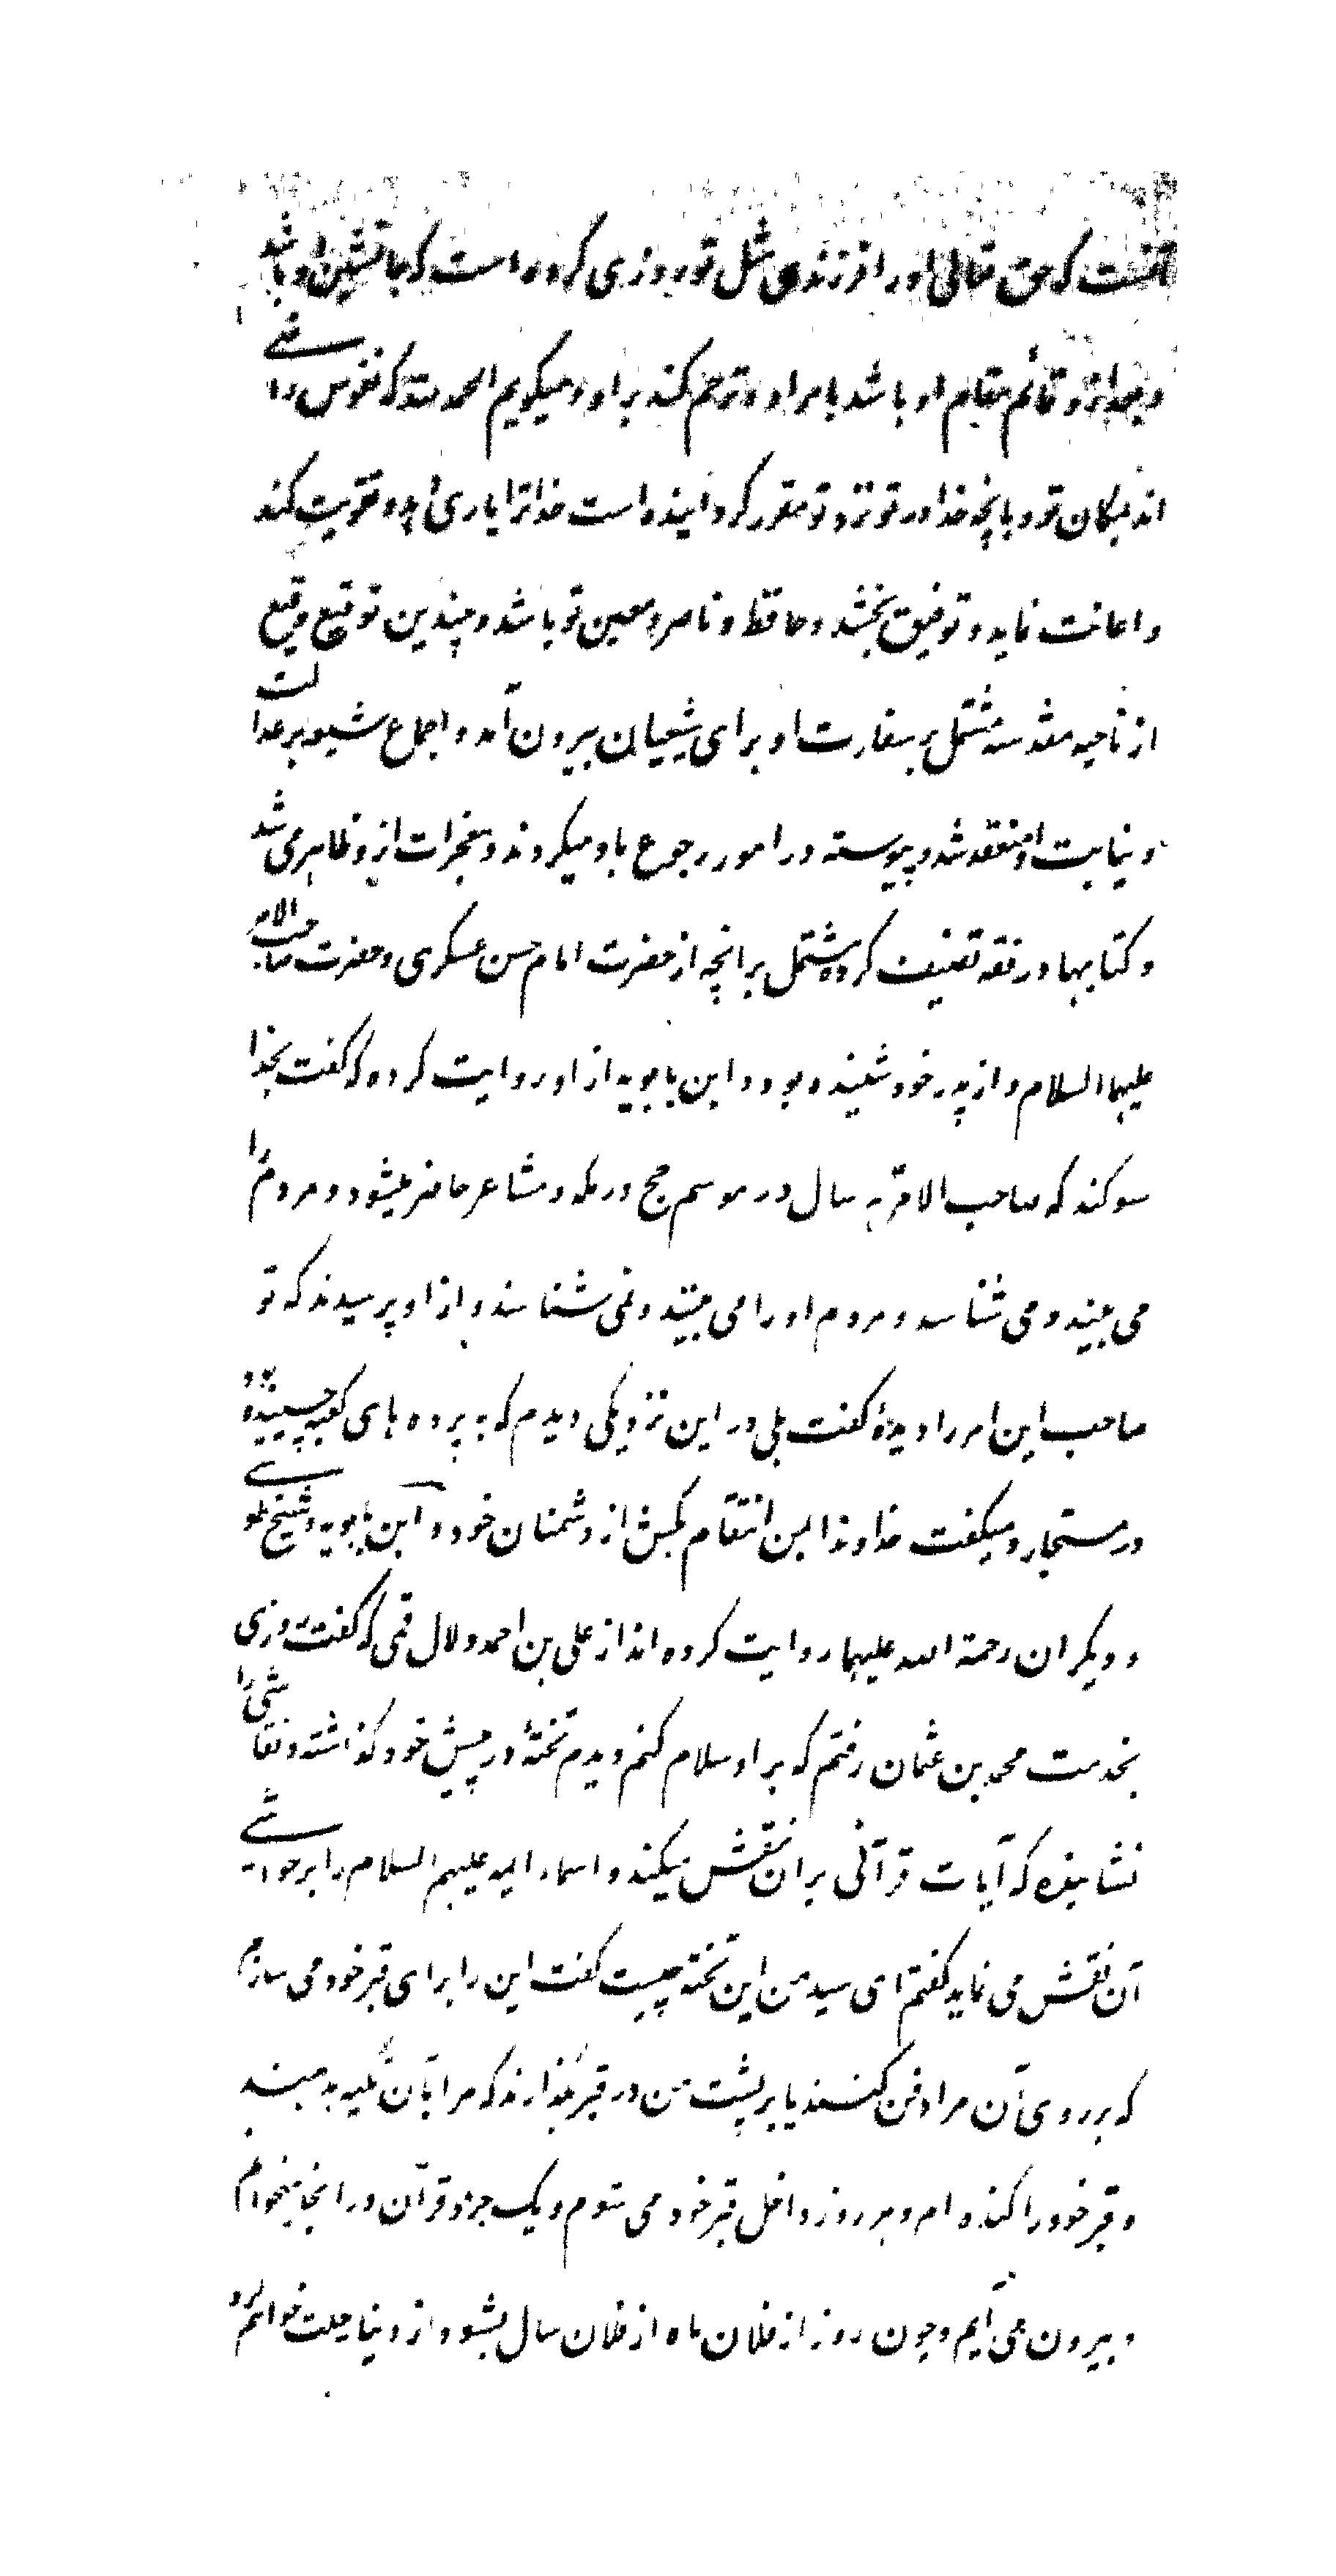 آنست که حق تعالی او را فرزندی مثل تو روزی کرده است که جانشین او باشد
و بعد از و قائم مقام او باشد بامر او و ترحم کند بر او و میگویم الحمد لله که نفوس راضی
اند بمکان تو و بانچه خدا در تو و نزد تو مقرر گردانیده است خدا ترا یاری نماید و تقویت کند
و اعانت نماید و توفیق بخشد و حافظ و ناصر و معین تو باشد و چندین توقیع رفیع
از ناحیه مقدسه مشتمل بر سفارت او برای شیعیان بیرون آمد و اجماع شیعه بر عدالت
و نیابت او منعقد شد و پیوسته در امور رجوع باو میکردند و معجزات ازو ظاهر می شد
و کتابها در فقه تصنیف کرده مشتمل بر انچه از حضرت امام حسن عسکری و حضرت صاحب الامر
علیهما السلام و از پدر خود شنیده بود و ابن بابویه از او روایت کرده که گفت بخدا
سوکند که صاحب الامر هر سال در موسم حج در مکه و مشاعر حاضر میشود و مردم را
می بیند و می شناسد و مردم او را می بینند و نمی شناسند و از او پرسیدند که تو
صاحب این امر را دیدهٔ گفت بلی در این نزدیکی دیدم که به پرده های کعبه چسبیده بود
در مستجار و میگفت خداوندا بمن انتقام بکش از دشمنان خود و ابن بابویه و شیخ طوسی
و دیگران رحمة الله علیهما روایت کرده اند از علی بن احمد دلال قمی که گفت روزی
بخدمت محمد بن عثمان رفتم که بر او سلام کنم دیدم تختهٔ در پیش خود گذاشته و نقاشی را
نشانیده که آیات قرآنی بران نقش میکند و اسماء ائمه علیهم السلام را بر حواشی
آن نقش می نماید گفتم ای سید من این تخته چیست گفت این را برای قبر خود می سازم
که بر روی آن مرا دفن کنند یا بر پشت من در قبر بگذارند که مرا بآن تکیه بدهند
و قبر خود را کنده ام و هر روز داخل قبر خود می شوم و یک جزو قرآن در انجا میخوانم
و بیرون می آیم و چون روز از فلان ماه از فلان سال بشود از دنیا رحلت خواهم کرد